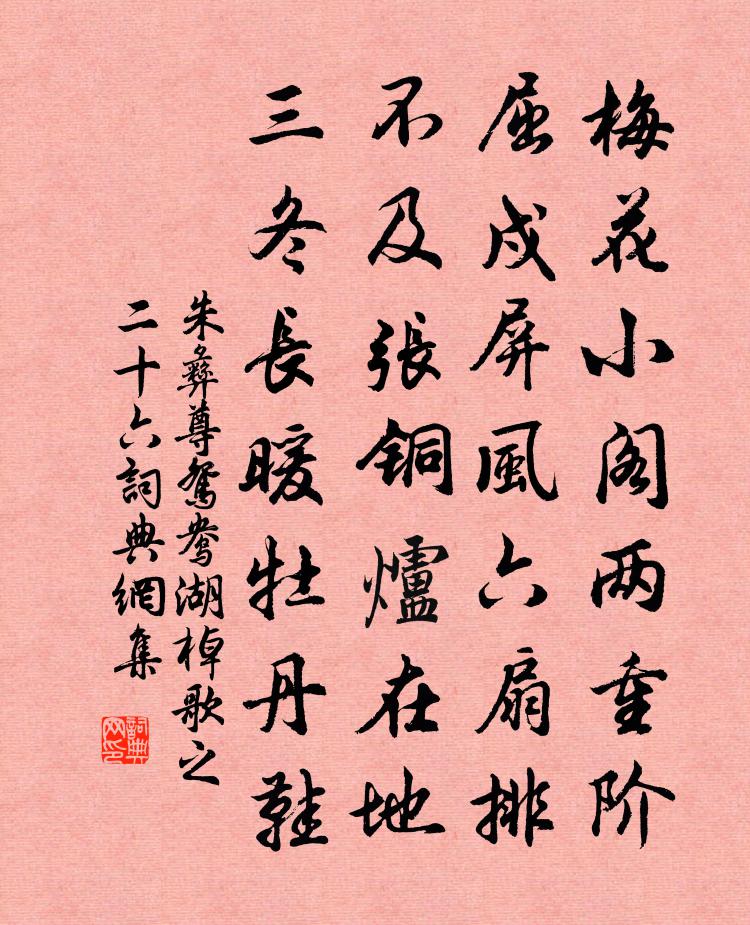 梅花小阁两重阶
屈戍屏風六扇排
不及張铜爐在地
三冬長暖牡丹鞋
朱彝尊鴛鴦湖棹歌之
二十六詞典網集
詞典网印